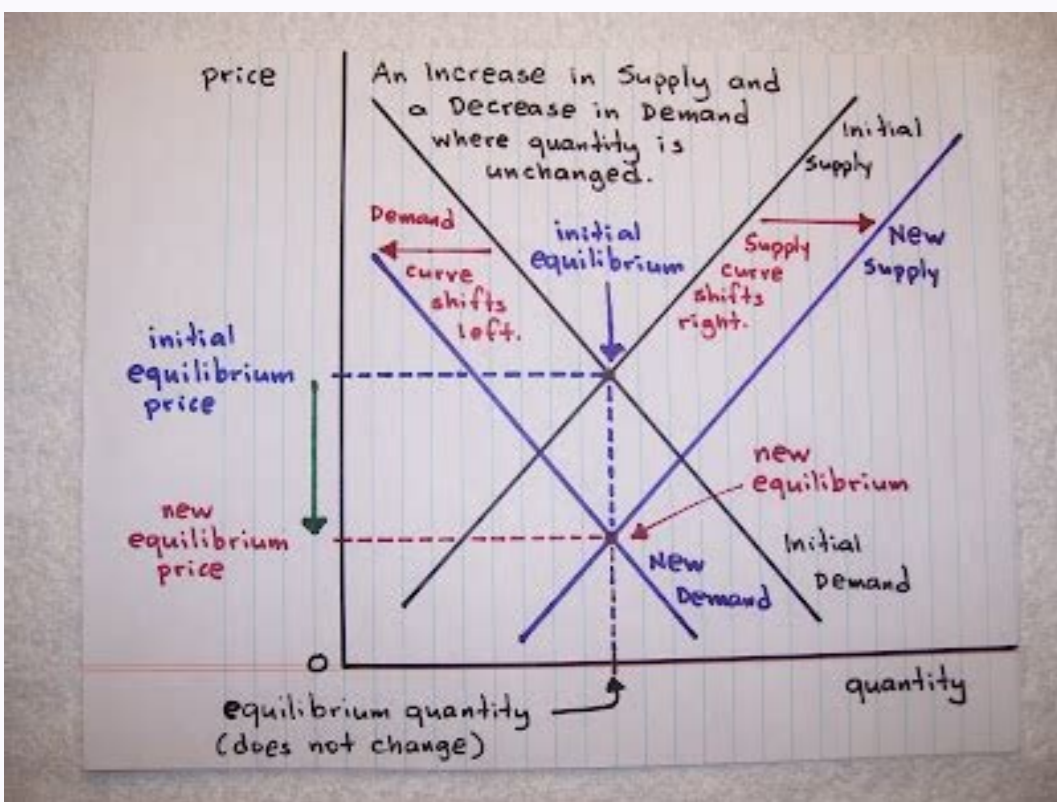 price
An Increase in Supply and
a Decrease in Demand
where quantity is
unchanged.
Initial
Supply
Demand
curve
shifts
left.
initial
equilibrium
Supply
curve
shifts
right.
New
Supply
initial
equilibrium
price
new
equilibrium
new
equilibrium
price
New
Demand
Initial
Demand
0
quantity
equilibrium quantity
(does not change)